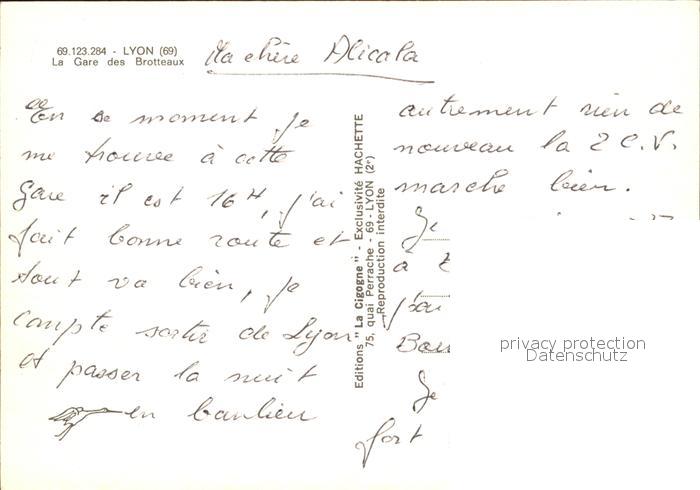 69.123.284 - LYON (69)
La Gare des Brotteaux
Ma chère Alicala
En ce moment je
me trouve à cette
gare il est 16H, j'ai
fait bonne route et
tout va bien, je
compte sortir de Lyon
et passer la nuit
en banlieu
Editions "La Cigogne" - Exclusivité HACHETTE
75, quai Perrache - 69 - LYON (2e)
Reproduction interdite
autrement rien de
nouveau la 2 C.V.
marche bien.
Je
à
j'ai
Je
fort
privacy protection
Datenschutz